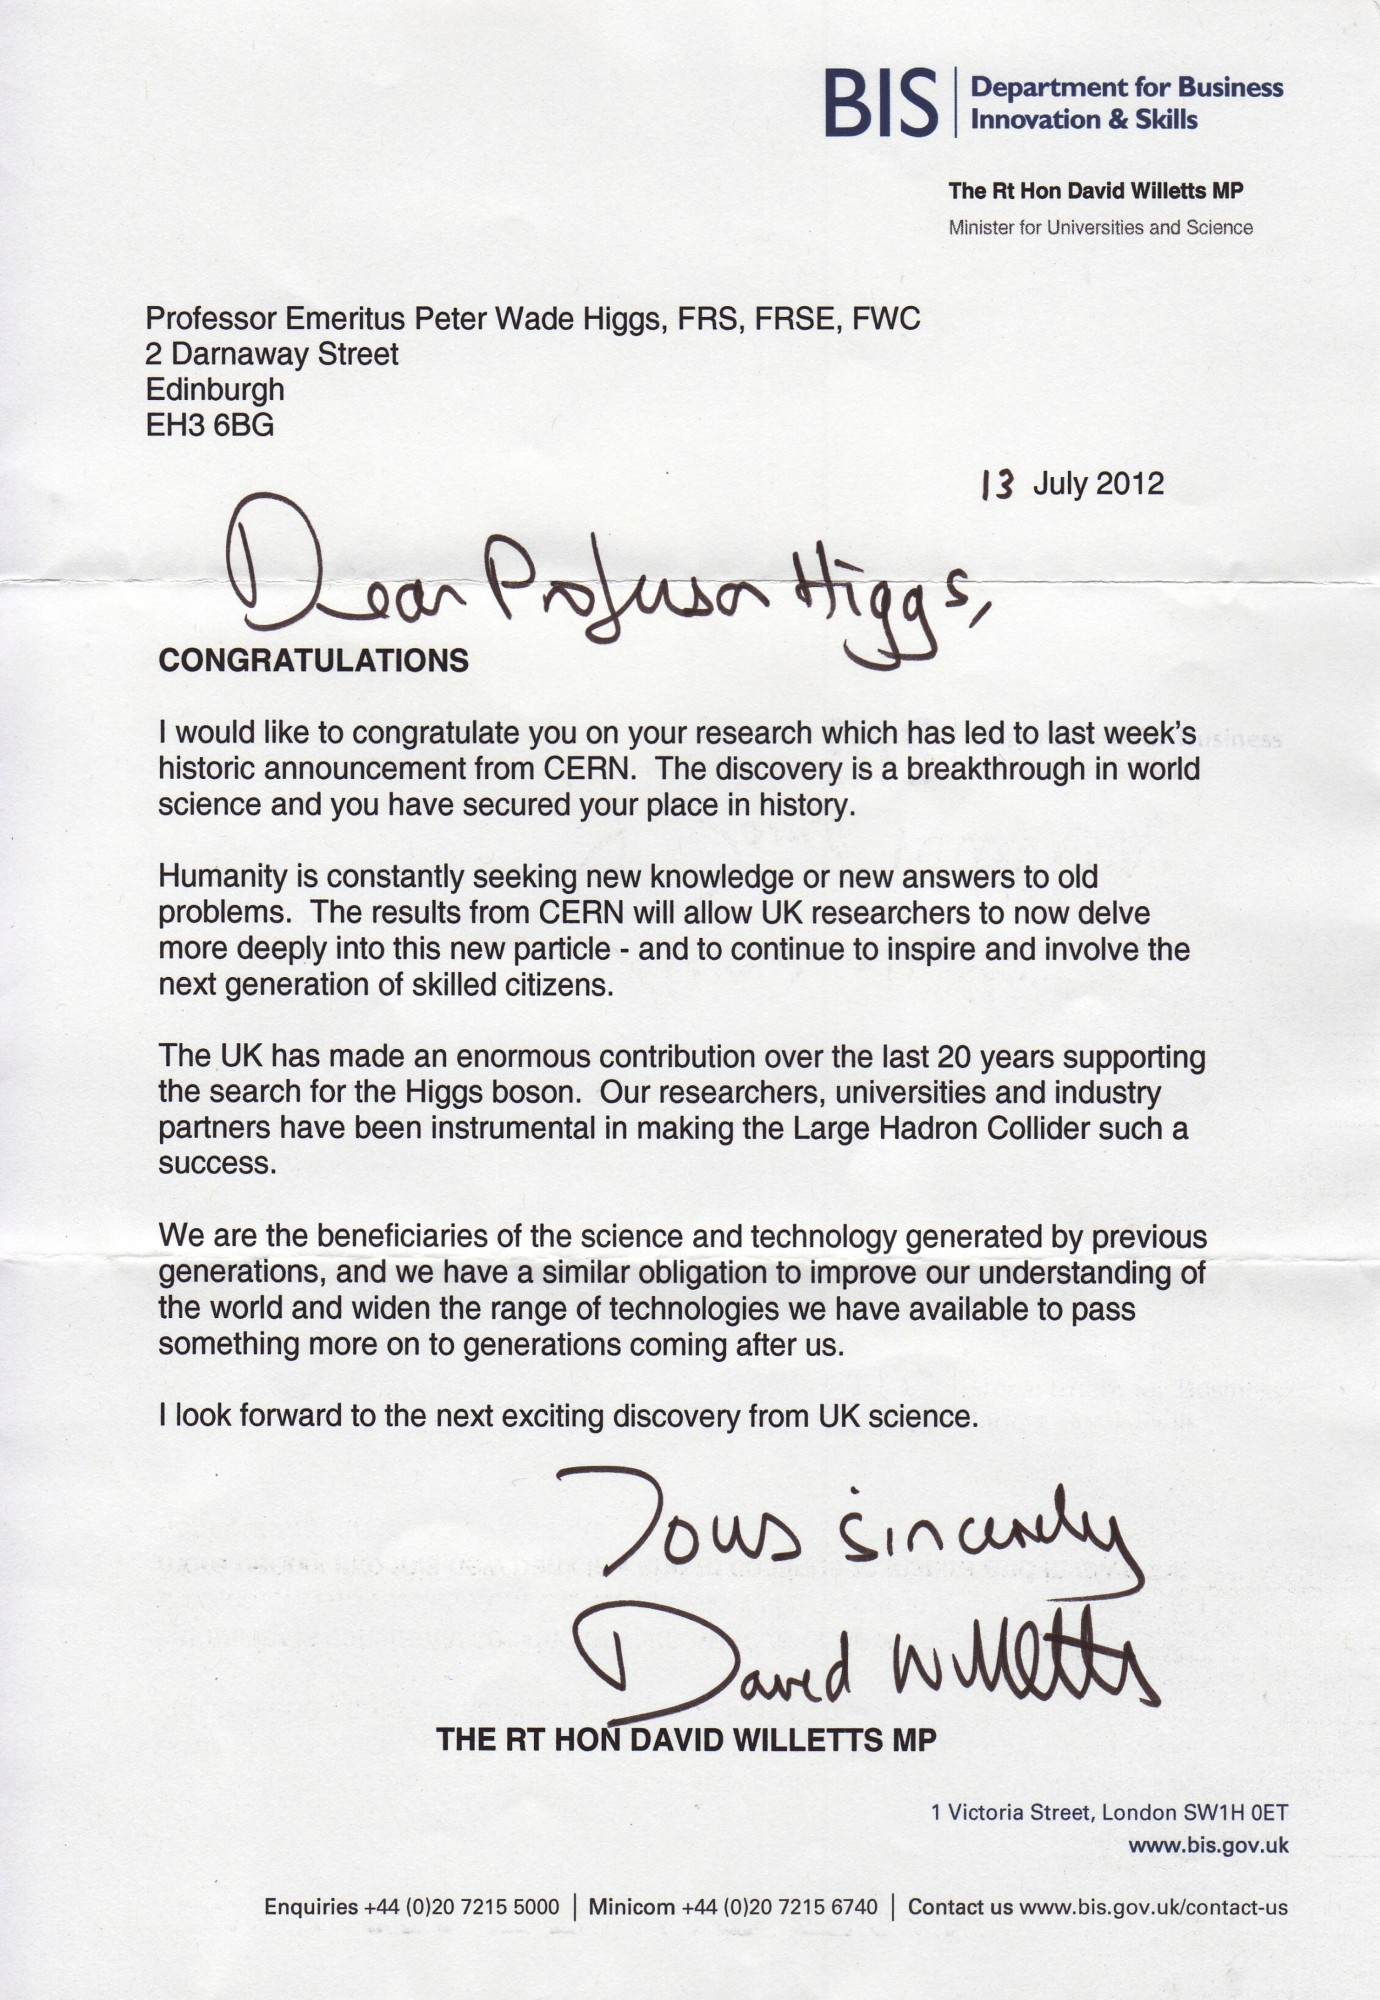 BIS
Department for Business
Innovation & Skills
The Rt Hon David Willetts MP
Minister for Universities and Science
Professor Emeritus Peter Wade Higgs, FRS, FRSE, FWC
2 Darnaway Street
Edinburgh
EH3 6BG
13 July 2012
Dear Professor Higgs,
CONGRATULATIONS
I would like to congratulate you on your research which has led to last week's
historic announcement from CERN. The discovery is a breakthrough in world
science and you have secured your place in history.
Humanity is constantly seeking new knowledge or new answers to old
problems. The results from CERN will allow UK researchers to now delve
more deeply into this new particle - and to continue to inspire and involve the
next generation of skilled citizens.
The UK has made an enormous contribution over the last 20 years supporting
the search for the Higgs boson. Our researchers, universities and industry
partners have been instrumental in making the Large Hadron Collider such a
success.
We are the beneficiaries of the science and technology generated by previous
generations, and we have a similar obligation to improve our understanding of
the world and widen the range of technologies we have available to pass
something more on to generations coming after us.
I look forward to the next exciting discovery from UK science.
Yours sincerely
David Willetts
THE RT HON DAVID WILLETTS MP
1 Victoria Street, London SW1H 0ET
www.bis.gov.uk
Enquiries +44 (0)20 7215 5000 | Minicom +44 (0)20 7215 6740 | Contact us www.bis.gov.uk/contact-us